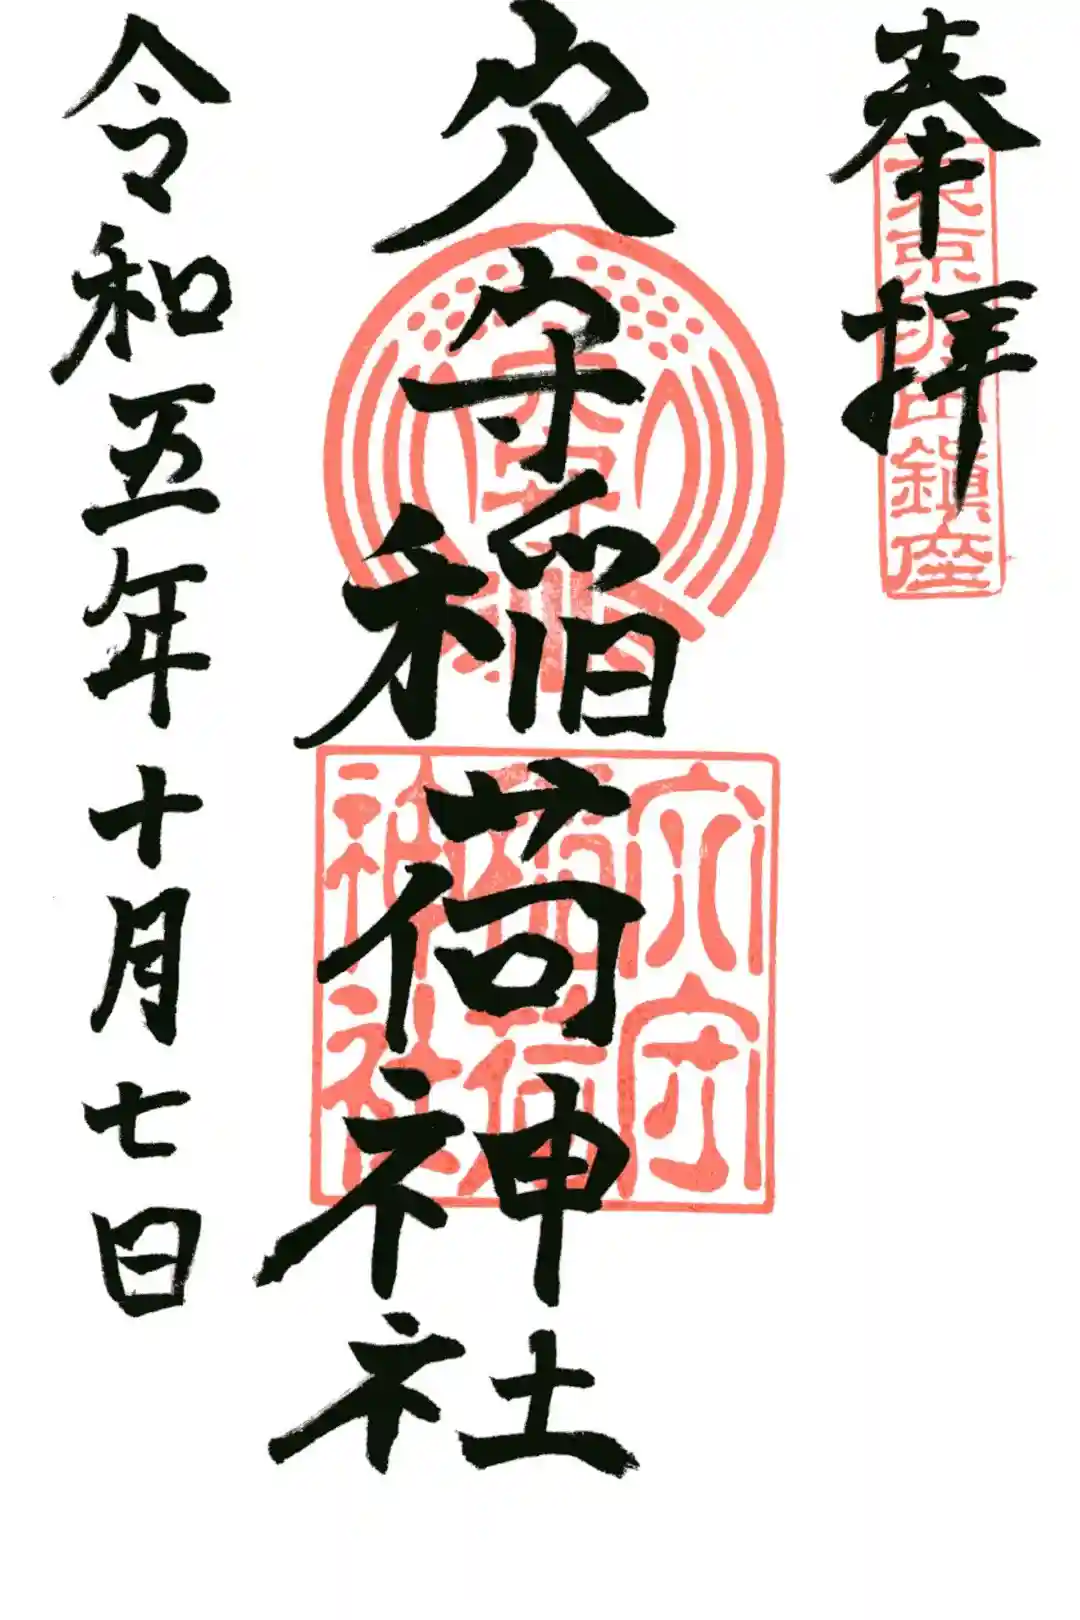 奉拝
東京羽田鎮座
穴守稲荷神社
穴守
稲荷
神社
令和五年十月七日